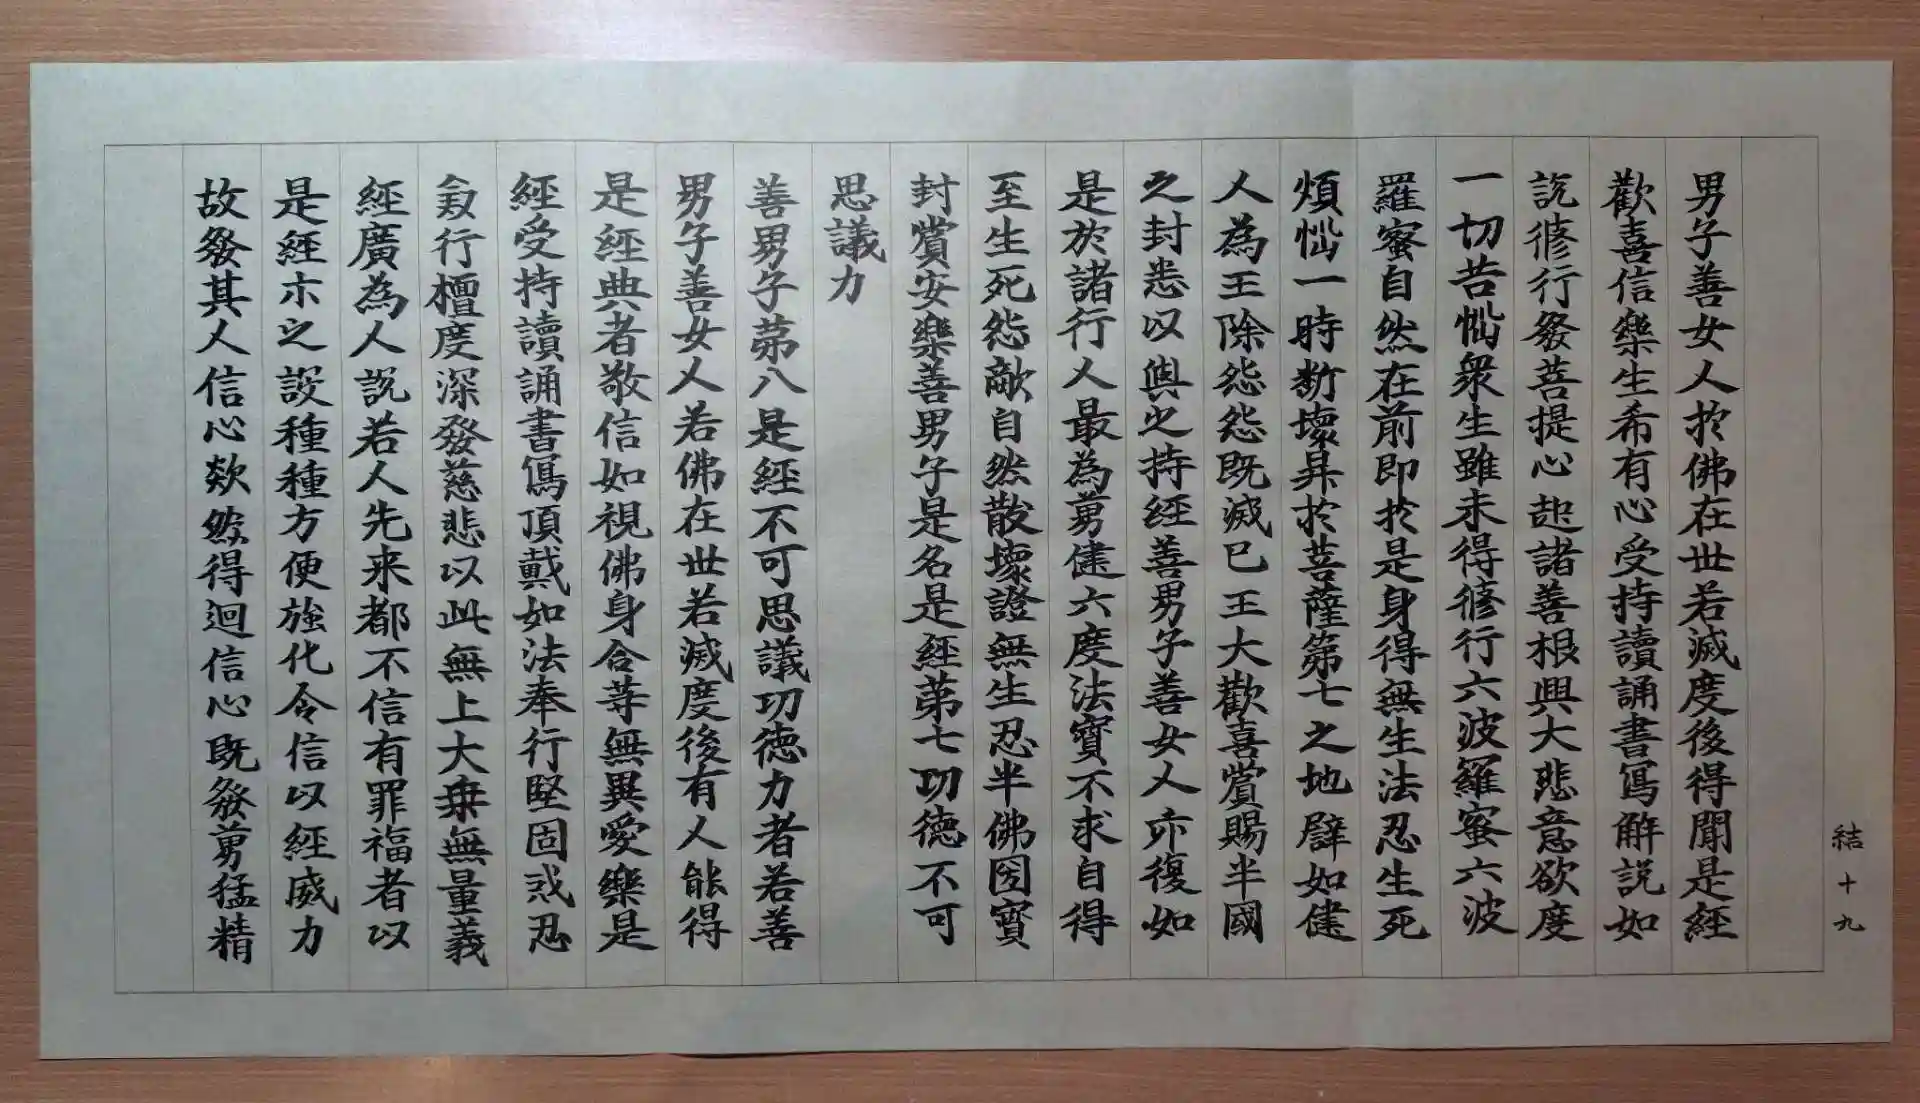 結十九
男子善女人於佛在世若滅度後得聞是經
歡喜信樂生希有心受持讀誦書寫解說如
說修行發菩提心起諸善根興大悲意欲度
一切苦惱衆生雖未得修行六波羅蜜六波
羅蜜自然在前即於是身得無生法忍生死
煩惱一時斷壞昇於菩薩第七之地譬如健
人為王除怨怨既滅已王大歡喜賞賜半國
之封悉以與之持經善男子善女人亦復如
是於諸行人最為勇健六度法寶不求自得
至生死怨敵自然散壞證無生忍半佛國寶
封賞安樂善男子是名是經第七功德不可
思議力
善男子第八是經不可思議功德力者若善
男子善女人若佛在世若滅度後有人能得
是經典者敬信如視佛身令等無異愛樂是
經受持讀誦書寫頂戴如法奉行堅固戒忍
兼行檀度深發慈悲以此無上大乗無量義
經廣為人說若人先来都不信有罪福者以
是經示之設種種方便強化令信以經威力
故發其人信心欻然得迴信心既發勇猛精